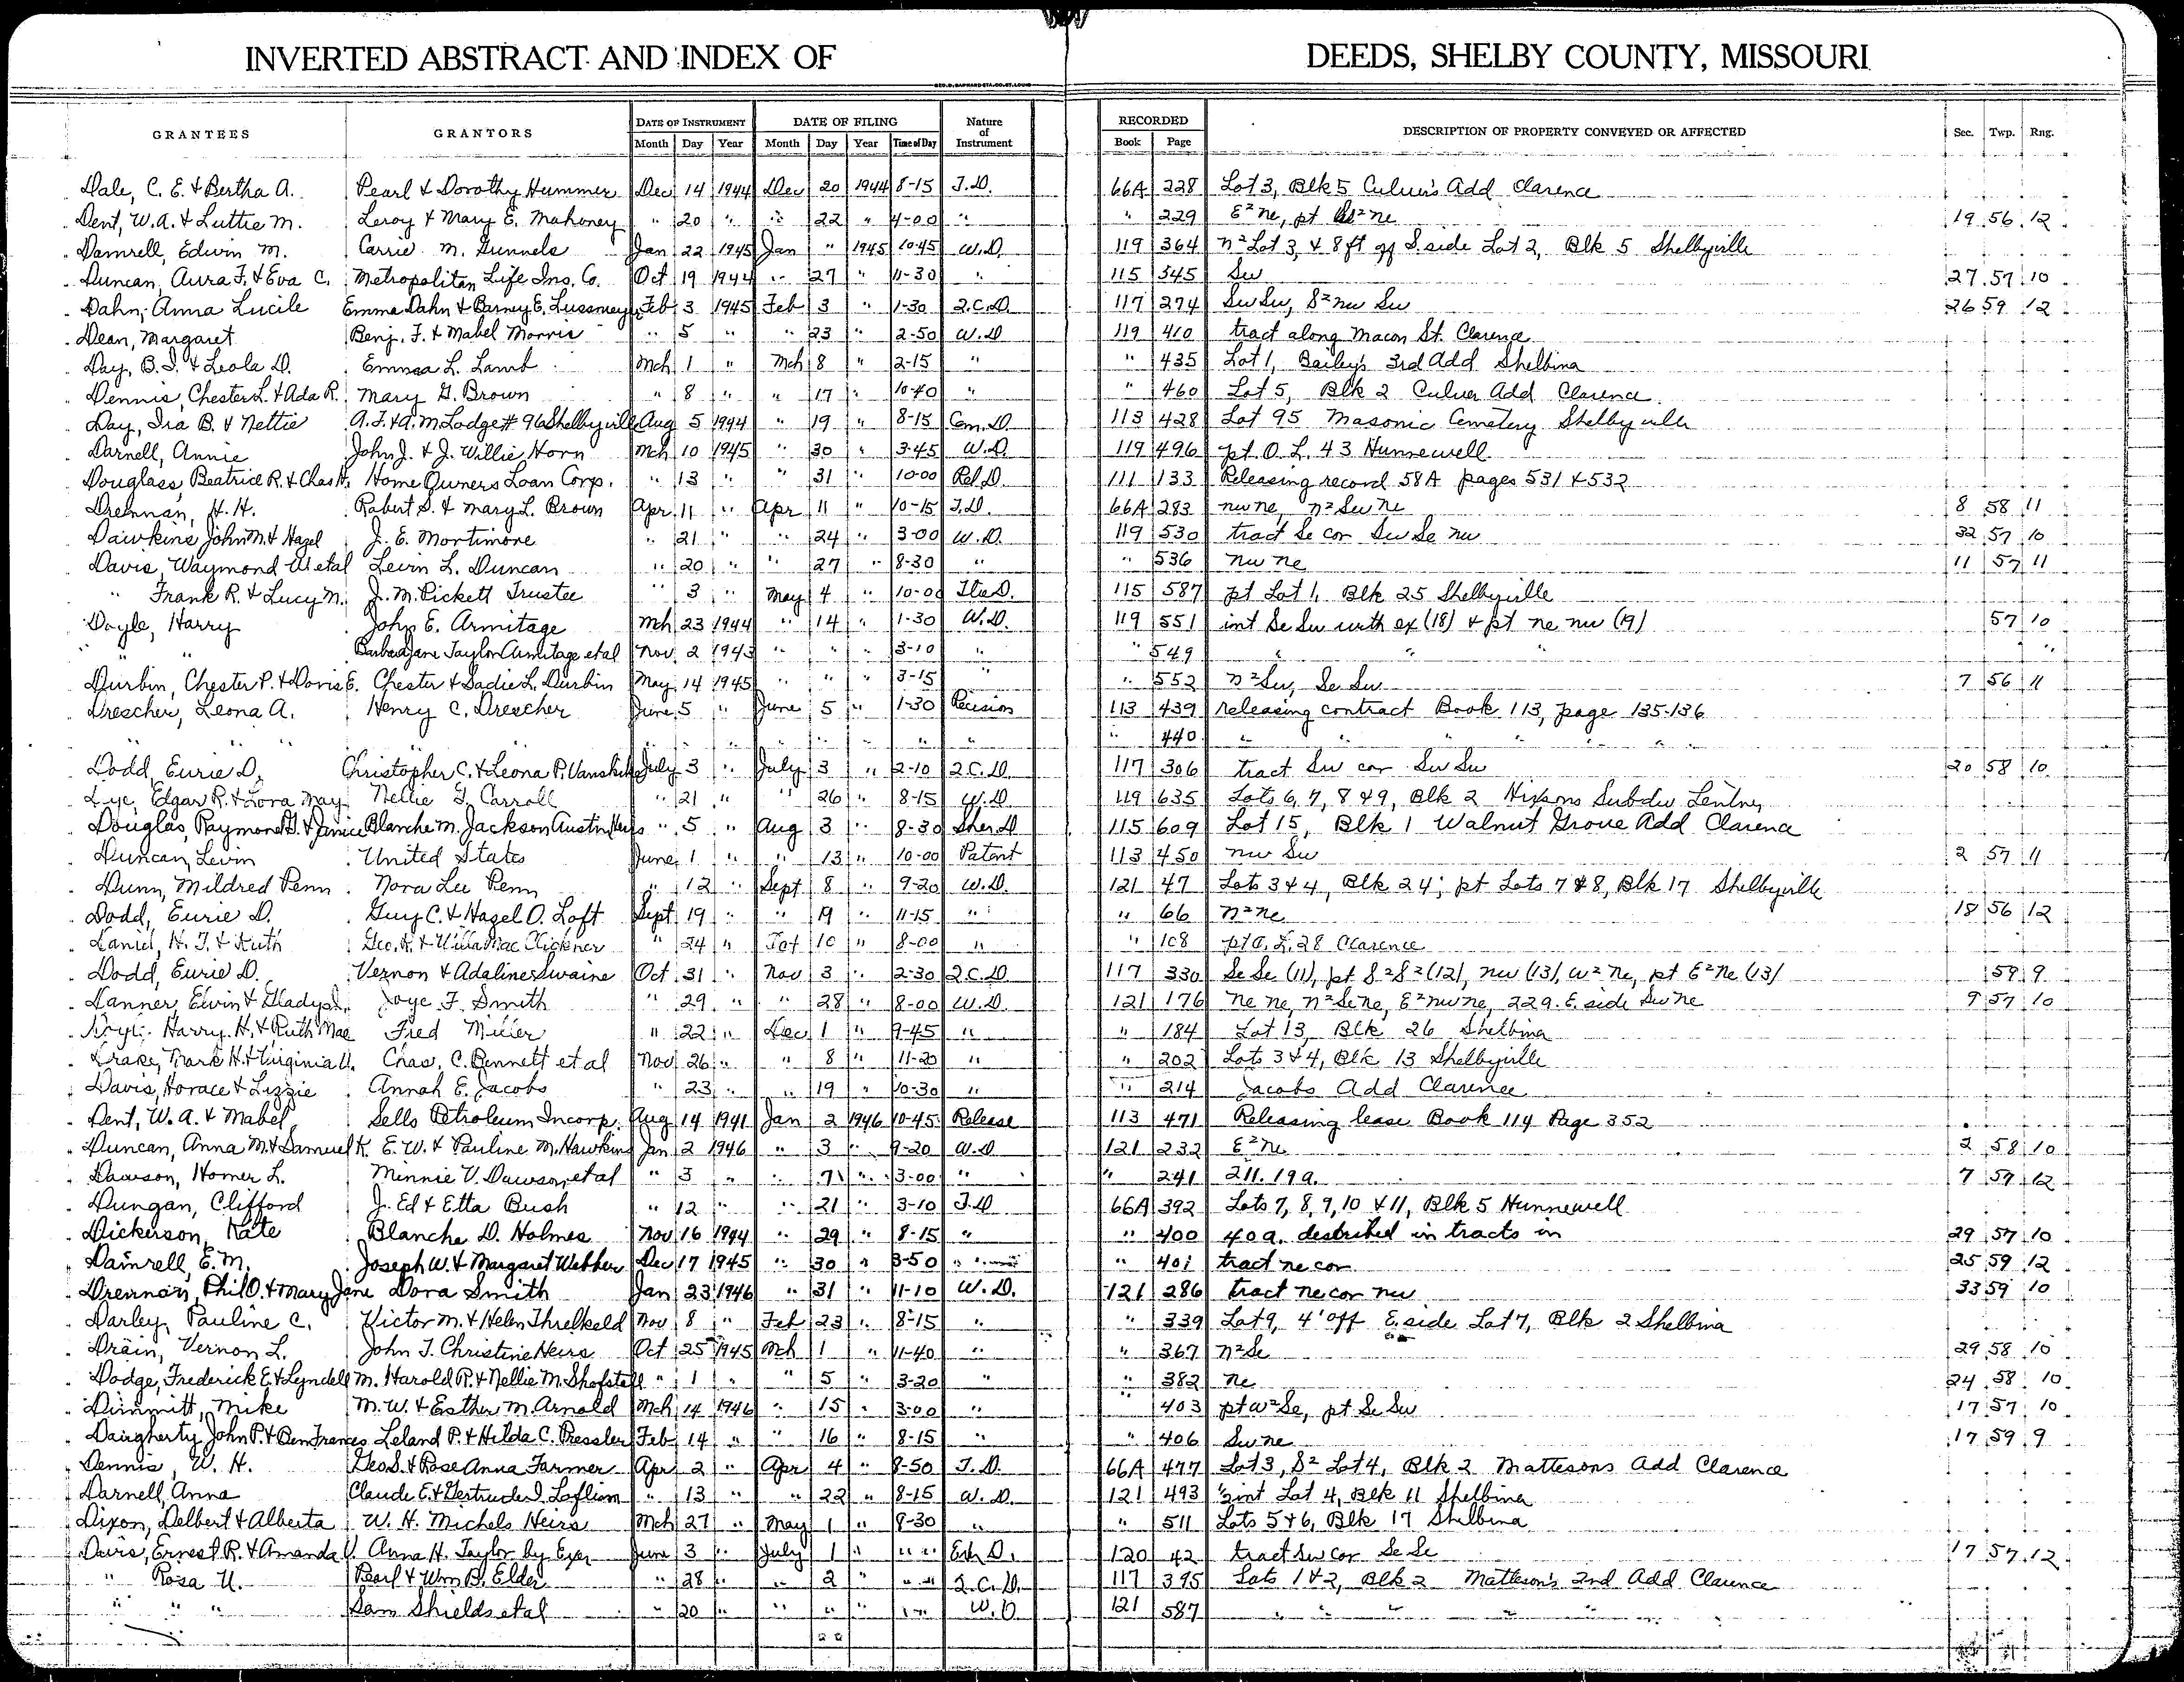 INVERTED ABSTRACT AND INDEX OF DEEDS, SHELBY COUNTY, MISSOURI
GRANTEES GRANTORS DATE OF INSTRUMENT DATE OF FILING Nature of Instrument RECORDED DESCRIPTION OF PROPERTY CONVEYED OR AFFECTED Sec. Twp. Rng.
Month Day Year Month Day Year Time of Day Book Page
Dale, C. E. & Bertha A. Pearl & Dorothy Hummer Dec 14 1944 Dec 20 1944 8-15 T.D. 66A 228 Lot 3, Blk 5 Culver's Add Clarence
Dent, W.A. & Luttie M. Leroy & Mary E. Mahoney " 20 " " 22 " 4-00 " " 229 E²ne, pt W²ne 19 56 12
Damrell, Edwin M. Carrie M. Gunnels Jan 22 1945 Jan " 1945 10-45 W.D. 119 364 n²Lot 3, & 8 ft off S. side Lot 2, Blk 5 Shelbyville
Duncan, Aura F. & Eva C. Metropolitan Life Ins. Co. Oct 19 1944 " 27 " 11-30 " 115 345 Sw 27 57 10
Dahn, Anna Lucile Emma Dahn & Barney E. Feb 3 1945 Feb 3 " 1-30 Q.C.D. 117 274 SwSw, S²nw Sw 26 59 12
Dean, Margaret Benj. F. & Mabel Morris " 5 " " 23 " 2-50 W.D 119 410 tract along Macon St. Clarence
Day, B.I. & Leola D. Emma L. Lamb Mch 1 " Mch 8 " 2-15 " " 435 Lot 1, Bailey's 3rd Add Shelbina
Dennis, Chester L. & Ada R. Mary G. Brown " 8 " " 17 " 10-40 " " 460 Lot 5, Blk 2 Culver Add Clarence
Day, Ira B. & Nettie A.F. & A.M Lodge # 96 Shelbyville Aug 5 1944 " 19 " 8-15 Cem. D. 113 428 Lot 95 Masonic Cemetery Shelbyville
Darnell, Annie John J. & J. Willie Horn Mch 10 1945 " 30 " 3-45 W.D. 119 496 pt O.L. 43 Hunnewell
Douglass, Beatrice R. & Chas H. Home Owners Loan Corp. " 13 " " 31 " 10-00 Rel D. 111 133 Releasing record 58A pages 531 & 532
Drennan, H.H. Robert S. & Mary L. Brown Apr 11 " Apr 11 " 10-15 T.D. 66A 283 nw ne, n² Sw ne 8 58 11
Dawkins John M. & Hazel J. E. Mortimore " 21 " " 24 " 3-00 W.D. 119 530 tract Se cor Sw Se nw 32 57 10
Davis, Waymond W etal Levin L. Duncan " 20 " " 27 " 8-30 " " 536 nw ne 11 57 11
" Frank R. & Lucy M. J. M. Pickett Trustee " 3 " May 4 " 10-00 115 587 pt Lot 1, Blk 25 Shelbyville
Doyle, Harry John E. Armitage Mch 23 1944 " 14 " 1-30 W.D. 119 551 int Se Sw with ex (18) & pt ne nw (19) 57 10
" " Barbara Jane Taylor Armitage etal Nov. 2 1943 " " " 3-10 " " 549 " " " "
Durbin, Chester P. & Doris E. Chester & Sadie L. Durbin May 14 1945 " " " 3-15 " " 552 n²Sw, Se Sw 7 56 11
Drescher, Leona A. Henry C. Drescher June 5 " June 5 " 1-30 Recision 113 439 releasing contract Book 113, page 135-136
" " " " " " " " " " " " " 440 " " " " "
Dodd, Eurie D. Christopher C. & Leona P. July 3 " July 3 " 2-10 Q.C.D. 117 306 tract Sw cor Sw Sw 20 58 10
Dye, Edgar R. & Lora May Nellie G. Carroll " 21 " " 26 " 8-15 W.D. 119 635 Lots 6, 7, 8 & 9, Blk 2 Hixsons Subdiv Lentner
Douglas, Raymond & Janice Blanche M. Jackson Austin Heirs " 5 " Aug 3 " 8-30 Sher D 115 609 Lot 15, Blk 1 Walnut Grove Add Clarence
Duncan, Levin United States June 1 " " 13 " 10-00 Patent 113 450 nw Sw 2 57 11
Dunn, Mildred Penn Nora Lee Penn " 12 " Sept 8 " 9-20 W.D. 121 47 Lots 3 & 4, Blk 24; pt Lots 7 & 8, Blk 17 Shelbyville
Dodd, Eurie D. Guy C. & Hazel O. Loft Sept 19 " " 19 " 11-15 " " 66 n²ne 18 56 12
Daniel, H. T. & Ruth Geo. H. & Willa Mae Clickner " 24 " 10 " 8-00 " " 108 pt O.L. 28 Clarence
Dodd, Eurie D. Vernon & Adaline Swaine Oct 31 " Nov 3 " 2-30 Q.C.D. 117 330 Se Se (11), pt S²S² (12), nw (13), w² ne, pt E²ne (13) 59 9
Danner, Elvin & Gladys Joye F. Smith " 29 " " 28 " 8-00 W.D. 121 176 ne ne, n²Se ne, E²nw ne, 22a. E. side Sw ne 9 57 10
Doyle Harry H. & Ruth Mae Fred Miller " 22 " Dec 1 " 9-45 " " 184 Lot 13, Blk 26 Shelbina
Drake, Mark H. & Virginia U. Chas. C. Bennett et al Nov 26 " " 8 " 11-20 " " 202 Lots 3 & 4, Blk 13 Shelbyville
Davis, Horace & Lizzie Annah E. Jacobs " 23 " " 19 " 10-30 " " 214 Jacobs Add Clarence
Dent, W. A. & Mabel Sells Petroleum Incorp. Aug 14 1941 Jan 2 1946 10-45 Release 113 471 Releasing lease Book 114 Page 352
Duncan, Anna M. & Samuel K. E. W. & Pauline M. Hawkins Jan 2 1946 " 3 " 9-20 W.D 121 232 E²ne 2 58 10
Dawson, Homer L. Minnie V. Dawson etal " 3 " 7 " 3-00 " " 241 211.19a. 7 57 12
Dungan, Clifford J. Ed & Etta Bush " 12 " " 21 " 3-10 T.D 66A 392 Lots 7, 8, 9, 10 & 11, Blk 5 Hunnewell
Dickerson, Kate Blanche D. Holmes Nov 16 1944 " 29 " 8-15 " " 400 40a. described in tracts in 29 57 10
Damrell, E. M. Joseph W. & Margaret Webber Dec 17 1945 " 30 " 3-50 " " 401 tract ne cor 25 59 12
Drennan, Phil O. & Mary Jane Dora Smith Jan 23 1946 " 31 " 11-10 W.D. 121 286 tract ne cor nw 33 59 10
Darley, Pauline C. Victor M. & Helen Threlkeld Nov 8 " Feb 23 " 8-15 " " 339 Lot 9, 4' off E. side Lot 7, Blk 2 Shelbina
Drain, Vernon L. John T. Christine Heirs Oct 25 1945 Mch 1 " 11-40 " " 367 n²Se 29 58 10
Dodge, Frederick E. & Lyndell M. Harold R. & Nellie M. Shofstall " 1 " " 5 " 3-20 " " 382 ne 24 58 10
Dimmitt, Mike M. W. & Esther M. Arnold Mch 14 1946 " 15 " 3-00 " 403 pt w²Se, pt Se Sw 17 57 10
Daugherty John P. & Ben Frances Leland P. & Hilda C. Pressler Feb 14 " " 16 " 8-15 " " 406 Sw ne 17 59 9
Dennis, W. H. Geo S. & Rose Anna Farmer Apr 2 " Apr 4 " 8-50 T.D. 66A 477 Lot 3, S² Lot 4, Blk 2 Mattesons Add Clarence
Darnell, Anna Claude E. & Gertrude I. " 13 " " 22 " 8-15 W.D. 121 493 ½ int Lot 4, Blk 11 Shelbina
Dixon, Delbert & Alberta W. H. Michels Heirs Mch 27 " May 1 " 8-30 " " 511 Lots 5 & 6, Blk 17 Shelbina
Davis, Ernest R. & Amanda J. Anna H. Taylor by Exer June 3 " July 1 " " " Ex. D. 120 42 tract Sw cor Se Se 17 57 12
" Rosa U. Pearl & Wm B. Elder " 28 " " 2 " Q.C.D. 117 395 Lots 1 & 2, Blk 2 Matteson's 2nd Add Clarence
" " " Sam Shields etal " 20 " " " " W.D 121 587 " " " " "